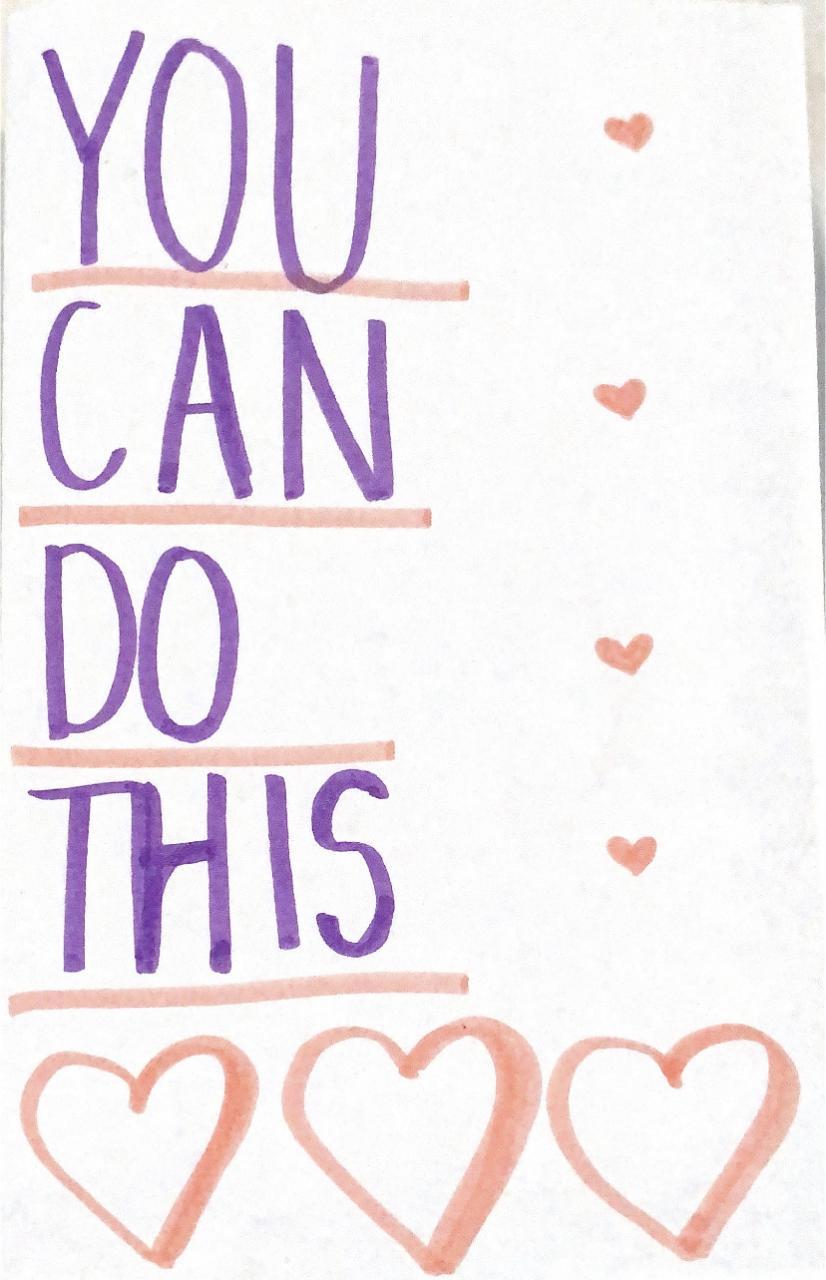 YOU
CAN
DO
THIS